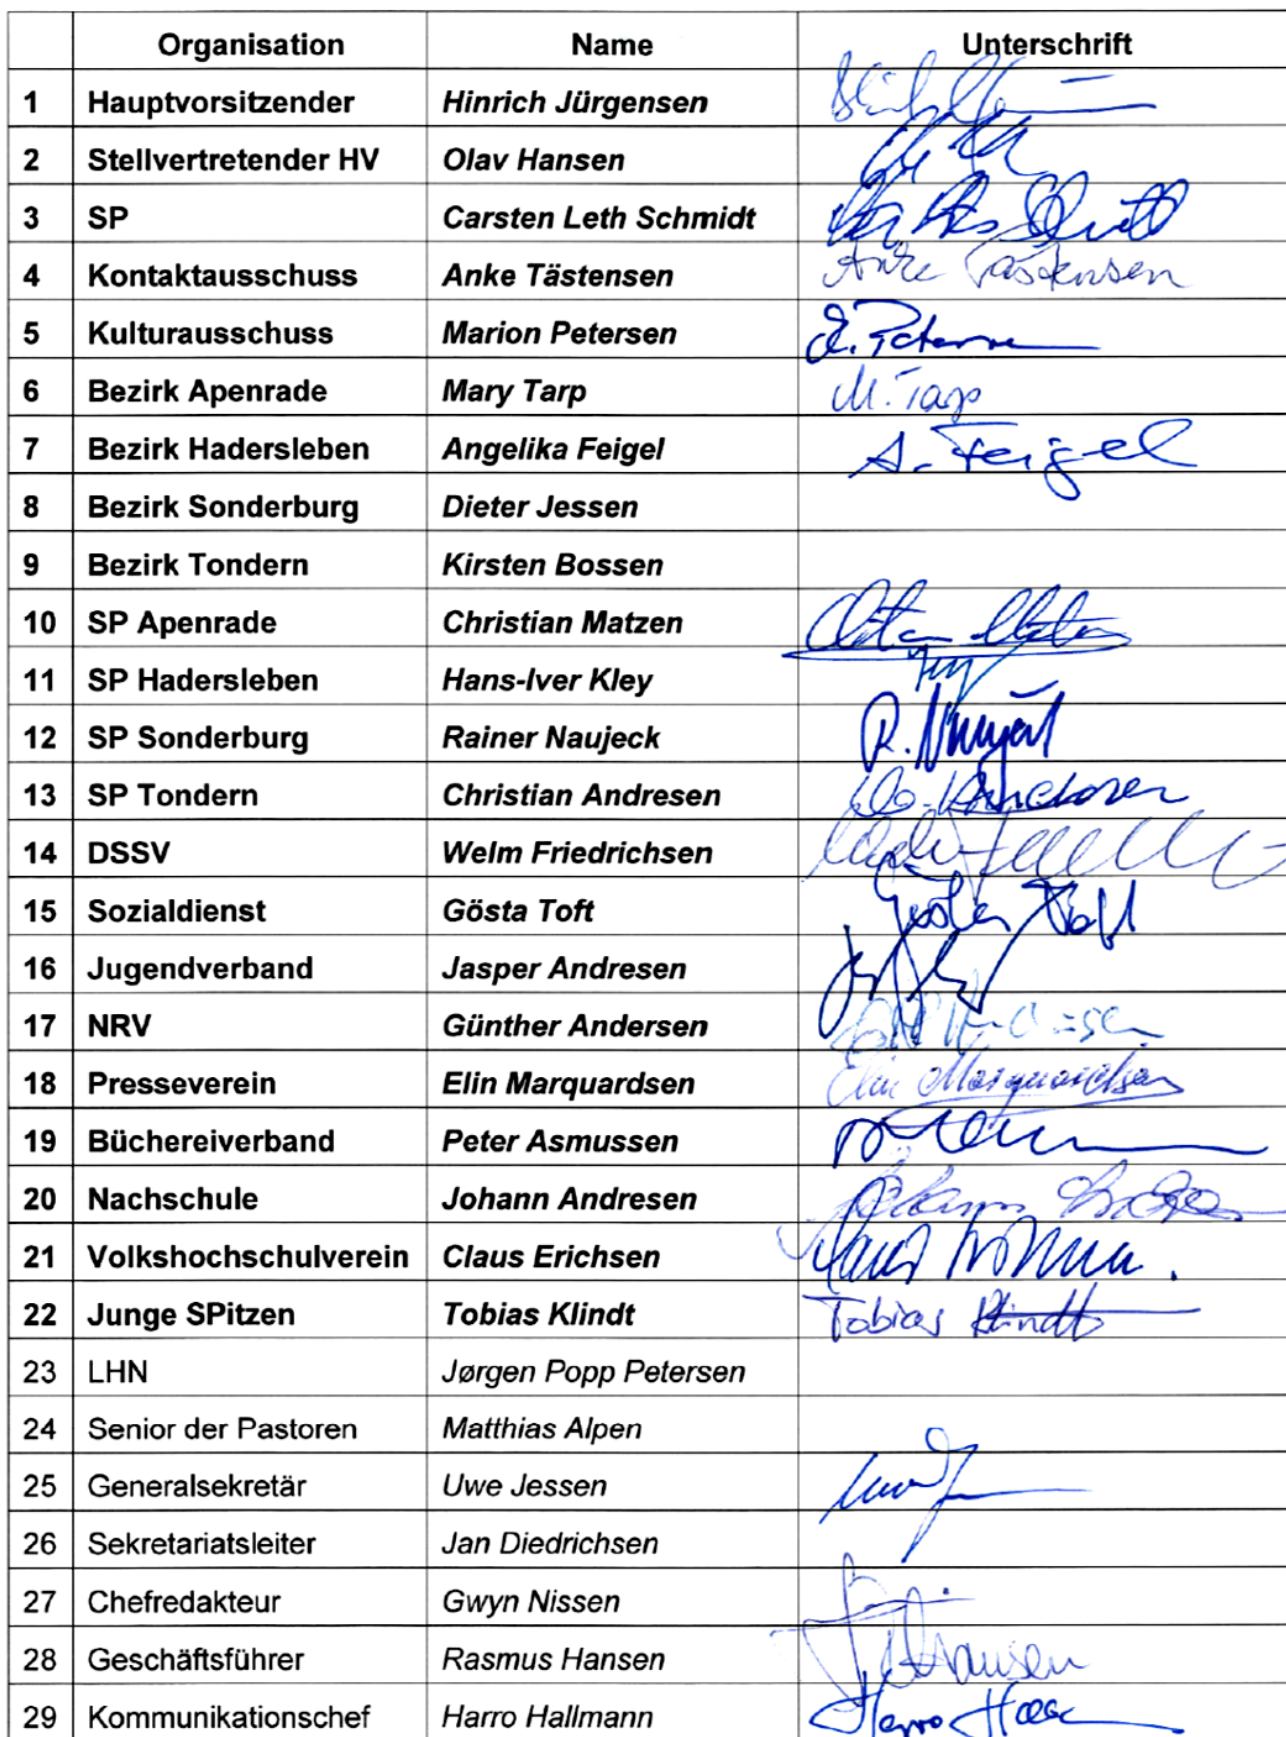 Organisation Name Unterschrift
1 Hauptvorsitzender Hinrich Jürgensen
2 Stellvertretender HV Olav Hansen
3 SP Carsten Leth Schmidt
4 Kontaktausschuss Anke Tästensen Anke Tästensen
5 Kulturausschuss Marion Petersen
6 Bezirk Apenrade Mary Tarp M. Tarp
7 Bezirk Hadersleben Angelika Feigel A. Feigel
8 Bezirk Sonderburg Dieter Jessen
9 Bezirk Tondern Kirsten Bossen
10 SP Apenrade Christian Matzen
11 SP Hadersleben Hans-Iver Kley
12 SP Sonderburg Rainer Naujeck
13 SP Tondern Christian Andresen
14 DSSV Welm Friedrichsen
15 Sozialdienst Gösta Toft Gösta Toft
16 Jugendverband Jasper Andresen
17 NRV Günther Andersen
18 Presseverein Elin Marquardsen Elin Marquardsen
19 Büchereiverband Peter Asmussen
20 Nachschule Johann Andresen
21 Volkshochschulverein Claus Erichsen
22 Junge SPitzen Tobias Klindt Tobias Klindt
23 LHN Jørgen Popp Petersen
24 Senior der Pastoren Matthias Alpen
25 Generalsekretär Uwe Jessen
26 Sekretariatsleiter Jan Diedrichsen
27 Chefredakteur Gwyn Nissen
28 Geschäftsführer Rasmus Hansen
29 Kommunikationschef Harro Hallmann